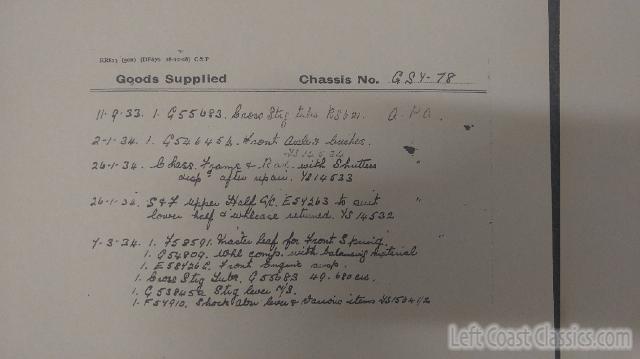 RR813 (50a) (DF679 18-10-28) C&P
Goods Supplied Chassis No. GSY-78
11-9-33. 1. G55683. Cross Stg tube RS621. A.P.A.
2-1-34. 1. G54645b. Front Axle & bushes. "
26-1-34. Chass. Frame & Rad. with Shutters "
desp'd after repair. YS14533
26-1-34. S & F upper Half C/C. E54263 to suit "
lower half & whlcase returned YS 14532
7-3-34. 1. F58591. Master leaf for Front Spring.
1. G54809. Whl comp. with balancing material
1. E58426C. Front Engine susp.
1. Cross Stg Tube. G55683 49.680 crs.
1. G53845a Stg lever N/S.
1. F54910. Shock abr lever & various items YS15041/2
Left Coast Classics.com